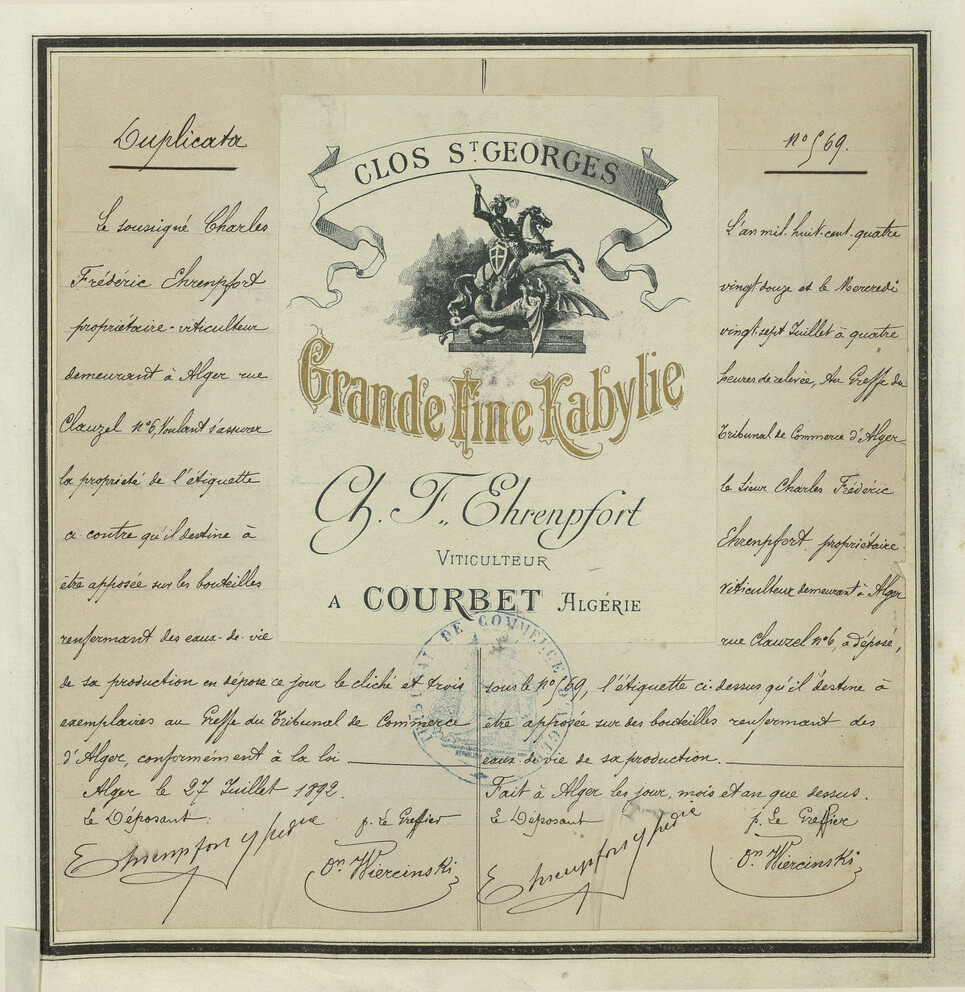 Duplicata
Le soussigné Charles
Fréderic Ehrenpfort
propriétaire-viticulteur
demeurant à Alger rue
Clauzel Nº 6, Voulant s'assurer
la propriété de l'étiquette
ci contre qu'il destine à
être apposée sur les bouteilles
renfermant des eaux-de-vie
de sa production en dépose ce jour le cliché et trois
exemplaires au Greffe du Tribunal de Commerce
d'Alger, conformément à la loi
Alger le 27 Juillet 1892.
Le Déposant:
p. Le Greffier
Ehrenpfort
On Wiercinski
CLOS ST GEORGES
Grande Fine Kabylie
Ch. F. Ehrenpfort
VITICULTEUR
A COURBET ALGÉRIE
TRIBUNAL DE COMMERCE D'ALGER
Nº 569.
L'an mil. huit. cent. quatre
vingt douze et le Mercredi
vingt sept Juillet à quatre
heures de relevée, Au Greffe du
Tribunal de Commerce d'Alger
le sieur Charles Fréderic
Ehrenpfort propriétaire
viticulteur demeurant à Alger
rue Clauzel Nº 6, a déposé,
sous le Nº 569, l'étiquette ci-dessus qu'il destine à
être apposée sur des bouteilles renfermant des
eaux-de-vie de sa production.
Fait à Alger les jour, mois et an que dessus.
Le Déposant
p. Le Greffier
Ehrenpfort
On Wiercinski